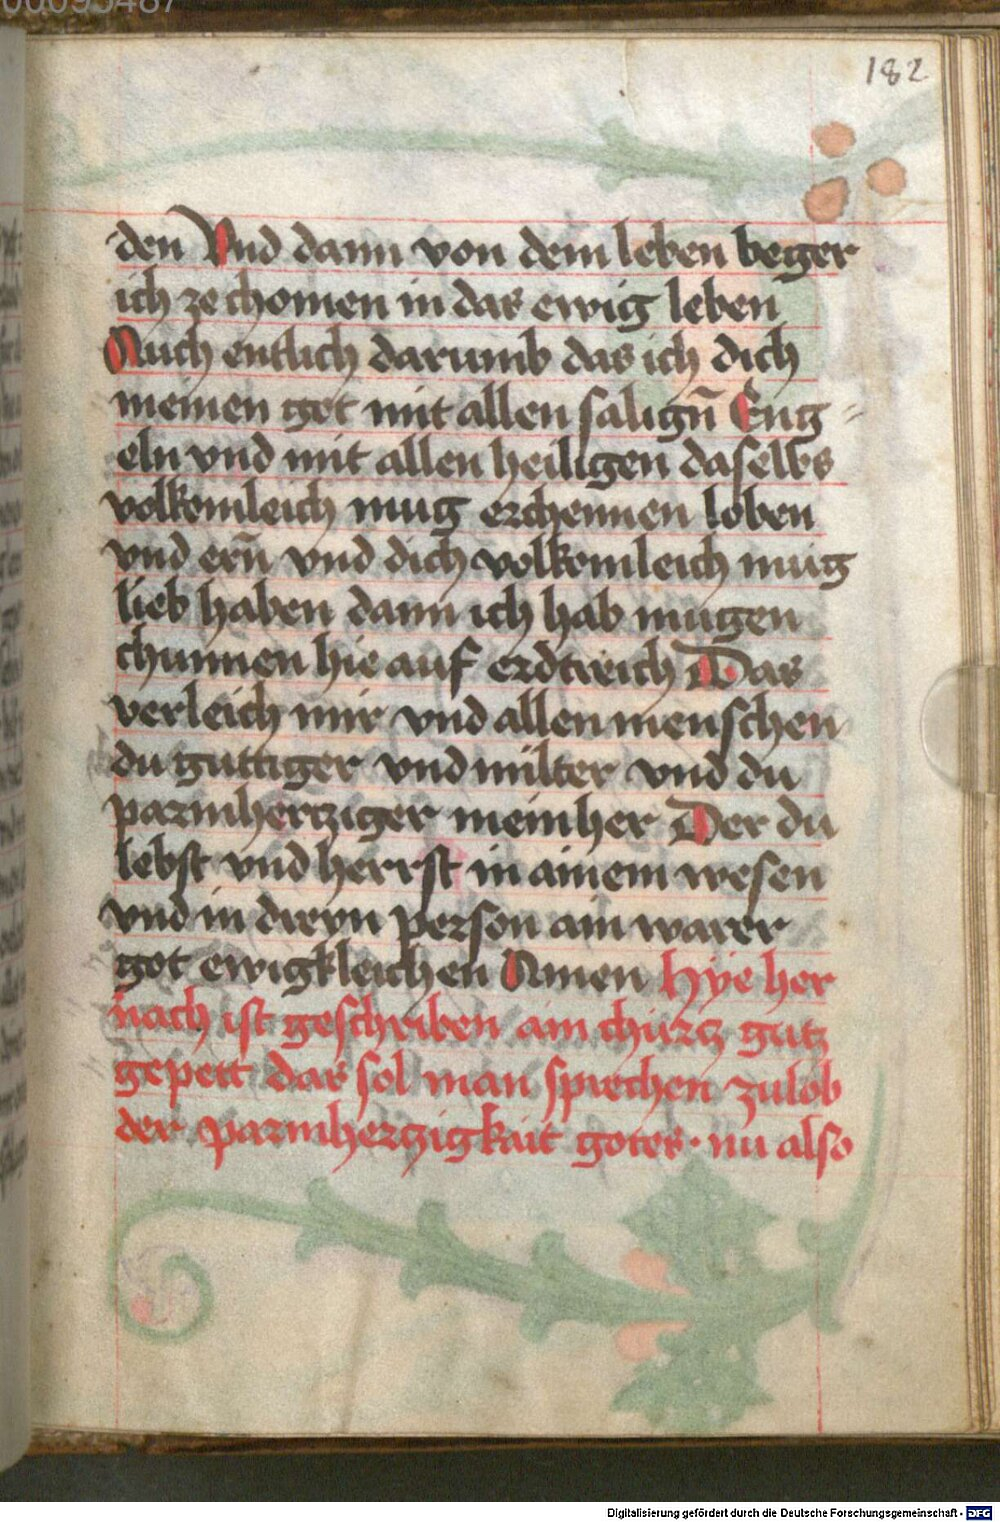 182
den Vnd dann von dem leben beger
ich ze chomen in das ewig leben
Auch entlich darumb das ich dich
meinen got mit allen salign̄ Eng=
eln vnd mit allen heiligen daselbs
volkomleich mug erchennen loben
vnd ern̄ vnd dich volkomleich mug
lieb haben dann ich hab mugen
chunnen hie auf erdtreich Das
verleich mir vnd allen menschen
du guttiger vnd milter vnd du
parmhertziger mein her Der du
lebst vnd herrst in ainem wesen
vnd in dreyn person ain warer
got ewigkleichen Amen Hye her
nach ist geschriben ain churtz gutz
gepett das sol man sprechen zu lob
der parmhertzigkait gotes · nu also
Digitalisierung gefördert durch die Deutsche Forschungsgemeinschaft - DFG